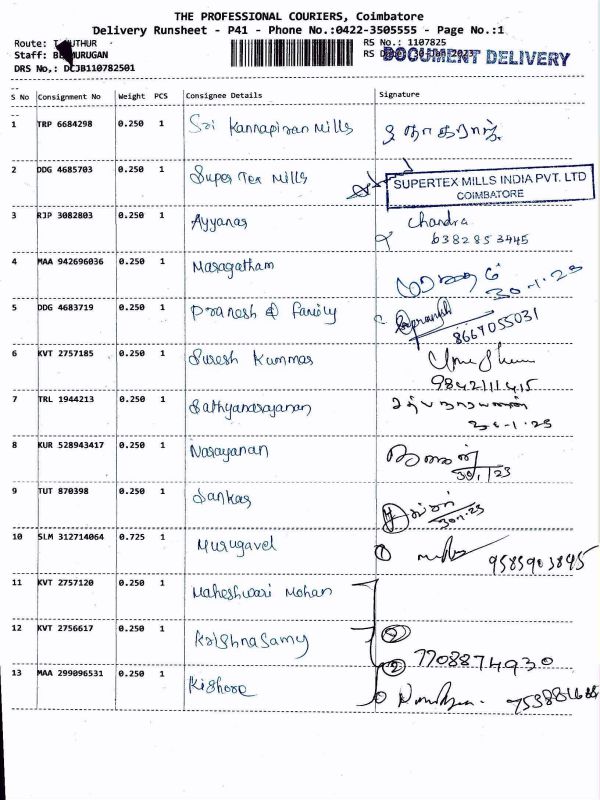 THE PROFESSIONAL COURIERS, Coimbatore
Delivery Runsheet - P41 - Phone No.:0422-3505555 - Page No.:1
Route: UTHUR
RS No.: 1107825
Staff: MURUGAN
RS DOCUMENT DELIVERY
DRS No,: DCJB110782501
S No Consignment No Weight PCS Consignee Details Signature
1 TRP 6684298 0.250 1 Sri Kannapiran Mills
2 DDG 4685703 0.250 1 Super Tex Mills SUPERTEX MILLS INDIA PVT. LTD
COIMBATORE
3 RJP 3082803 0.250 1 Ayyanar Chandra
6382853445
4 MAA 942696036 0.250 1 Maragatham
30-1-23
5 DDG 4683719 0.250 1 Pranesh & family
8667055031
6 KVT 2757185 0.250 1 Suresh Kummar
9842111415
7 TRL 1944213 0.250 1 Sathyanarayanan சத்யநாராயணன்
30-1-23
8 KUR 528943417 0.250 1 Narayanan
30/1/23
9 TUT 870398 0.250 1 Sankar
30.1.23
10 SLM 312714064 0.725 1 Murugavel 9585903845
11 KVT 2757120 0.250 1 Maheshwari Mohan
12 KVT 2756617 0.250 1 Krishnasamy
7708874930
13 MAA 299096531 0.250 1 Kishore